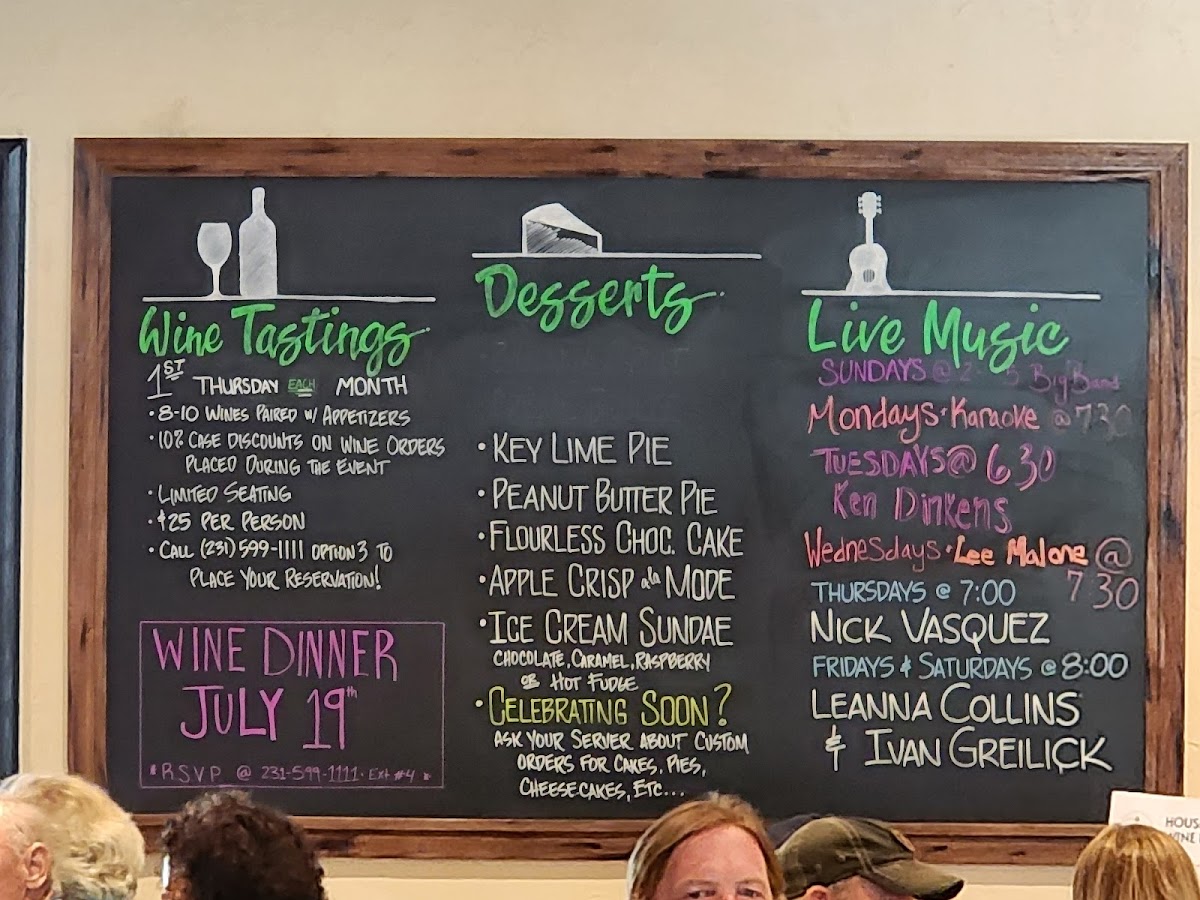 Wine Tastings
1ST THURSDAY EACH MONTH
• 8-10 WINES PAIRED W/ APPETIZERS
• 10% CASE DISCOUNTS ON WINE ORDERS
PLACED DURING THE EVENT
• LIMITED SEATING
• $25 PER PERSON
• CALL (231) 599-1111 OPTION 3 TO
PLACE YOUR RESERVATION!
WINE DINNER
JULY 19th
* RSVP @ 231-599-1111 • Ext #4 *
Desserts
• KEY LIME PIE
• PEANUT BUTTER PIE
• FLOURLESS CHOC. CAKE
• APPLE CRISP a la MODE
• ICE CREAM SUNDAE
CHOCOLATE, CARAMEL, RASPBERRY
OR HOT FUDGE
• CELEBRATING SOON?
ASK YOUR SERVER ABOUT CUSTOM
ORDERS FOR CAKES, PIES,
CHEESECAKES, ETC...
Live Music
SUNDAYS @ 2 - 5 Big Band
Mondays • Karaoke @ 7:30
TUESDAYS @ 6:30
Ken Dinkens
Wednesdays • Lee Malone @
7:30
THURSDAYS @ 7:00
NICK VASQUEZ
FRIDAYS & SATURDAYS @ 8:00
LEANNA COLLINS
& IVAN GREILICK
HOUS
WINE